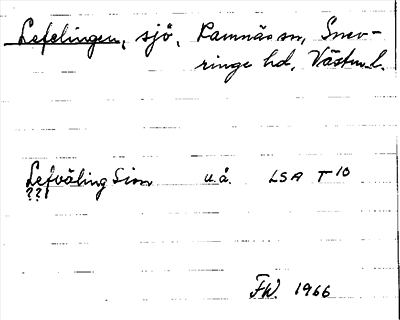 Lefelingen, sjö, Ramnäs sn, Snev-
ringe hd, Västm. l.
Lefväling Siön u.å. LSA T 10
??
FW. 1966